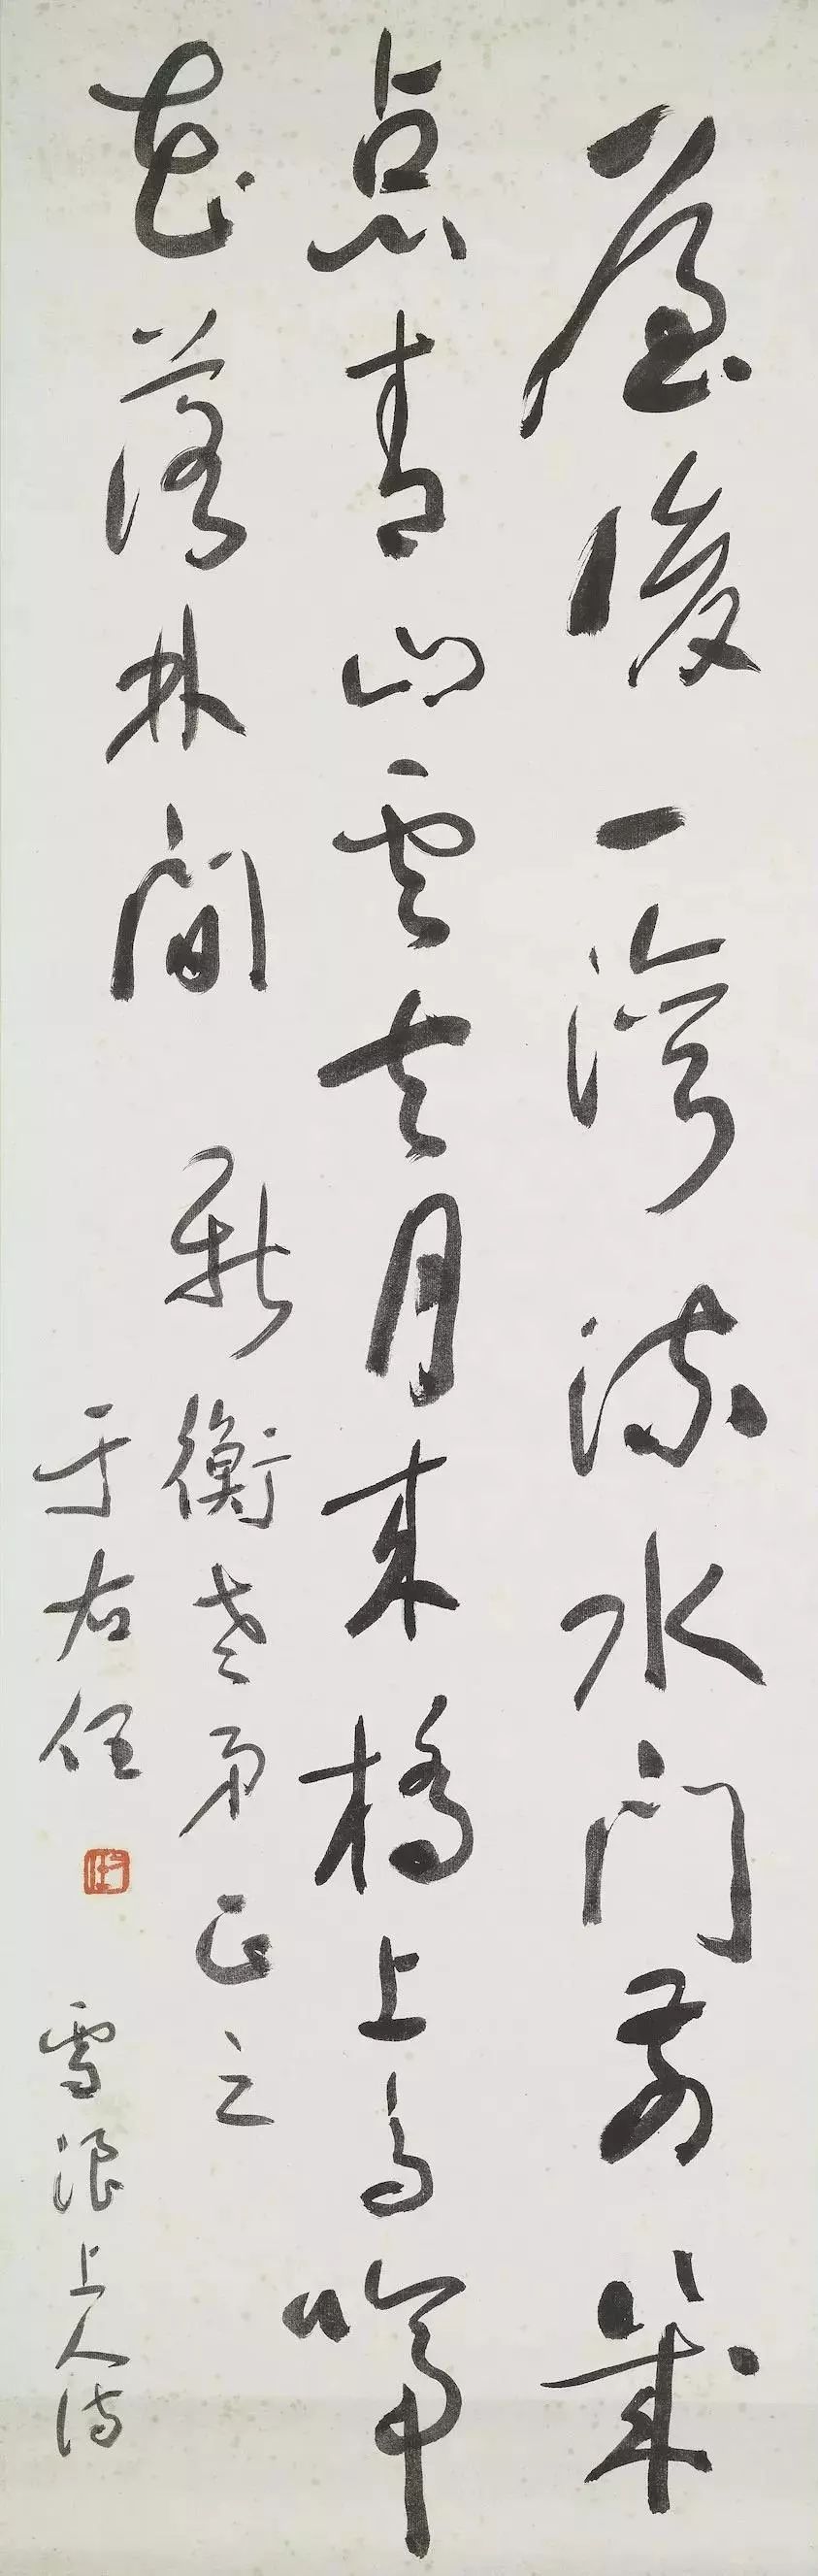 屋後一灣流水門前幾
点青山雲去月来橋上鳥啼
花落林間
新衡老弟正之
于右任
雪浪上人詩